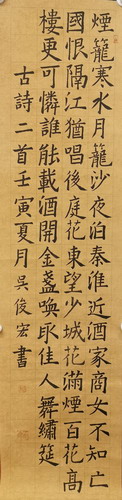 煙籠寒水月籠沙夜泊秦淮近酒家商女不知亡
國恨隔江猶唱後庭花東望少城花滿煙百花高
樓更可憐誰能載酒開金盞喚取佳人舞繡筵
古詩二首壬寅夏月吳俊宏書